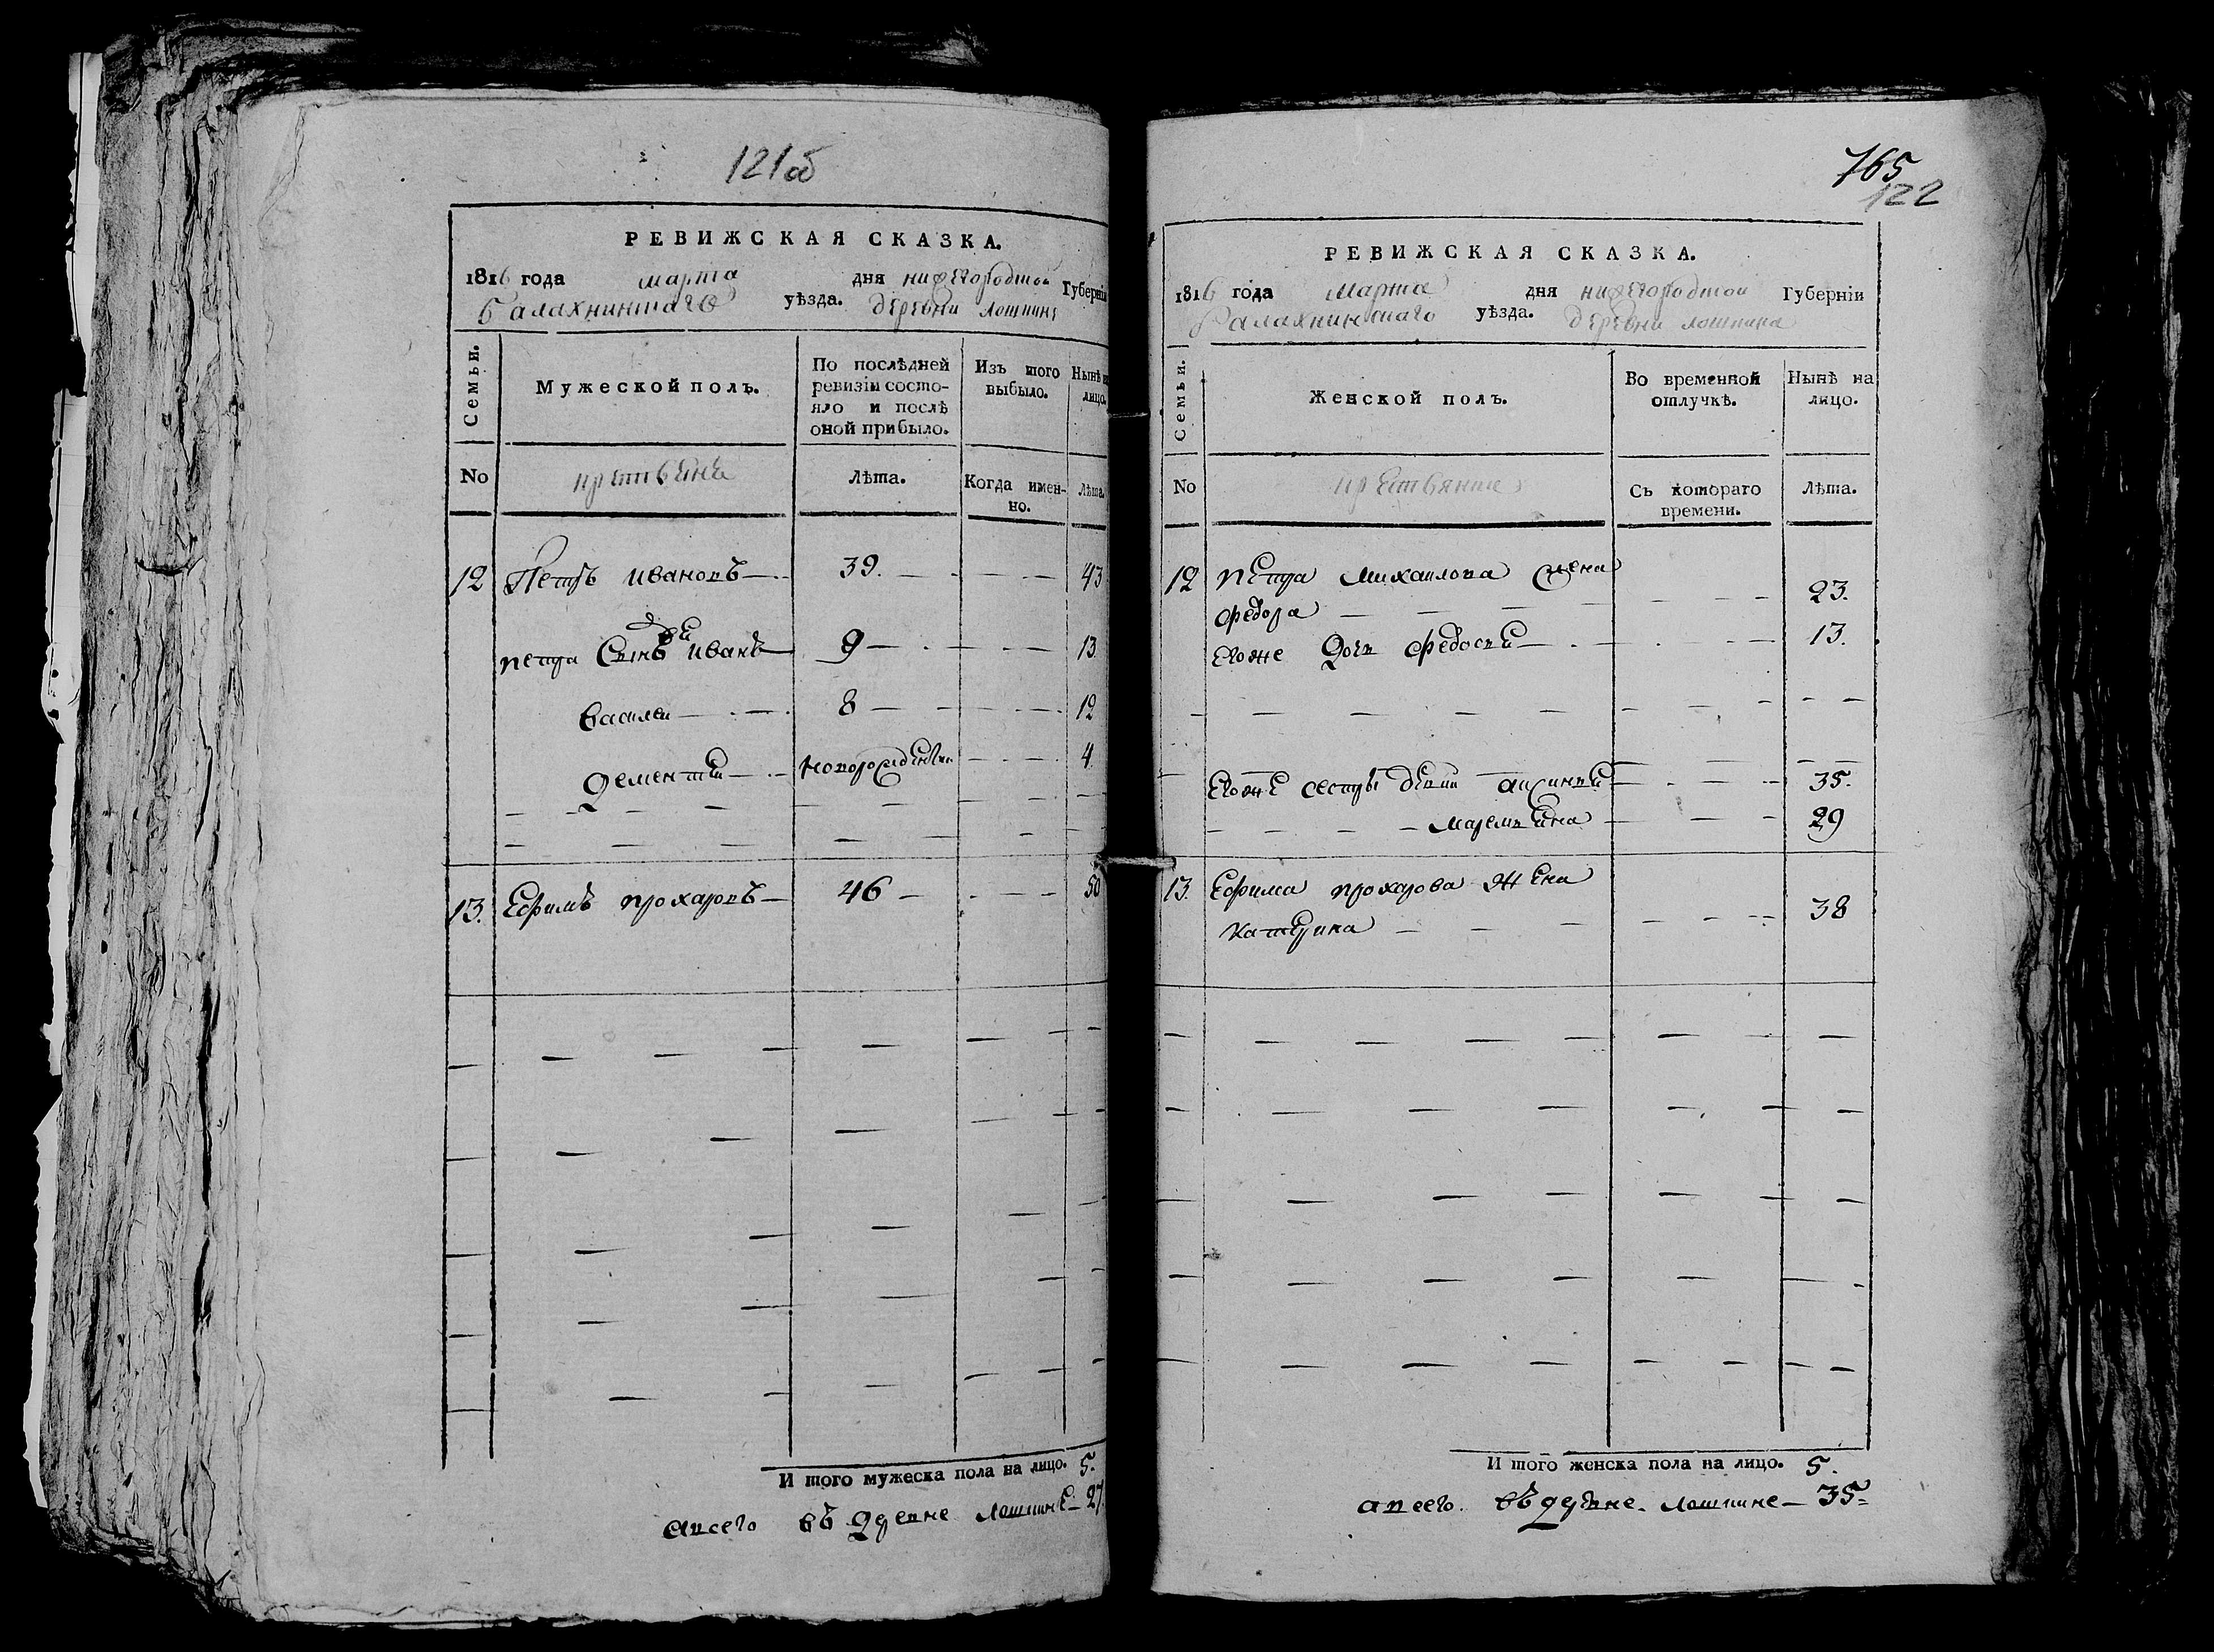 121об
РЕВИЖСКАЯ СКАЗКА.
1816 года марта дня нижегородской Губерніи
Балахнинскаго уѣзда. деревни лошкине
Семьи.
Мужеской полъ.
По послѣдней ревизіи состо-
яло и послѣ
оной прибыло.
Изъ того выбыло.
Нынѣ на лицо.
No
Лѣта.
Когда имен-
но.
Лѣта.
12 Петръ ивановъ 39. 43
петра Сынъ иванъ 9 13
василей 8 12
дементей новорожденной 4
13. Ефимъ прохаровъ 46 50
И того мужеска пола на лицо. 5.
авсего въ деревне лошкине 27
765
122
РЕВИЖСКАЯ СКАЗКА.
1816 года марта дня нижегородской Губерніи
Балахнинскаго уѣзда. деревни лошкина
Семьи.
Женской полъ.
Во временной
отлучкѣ.
Нынѣ на
лицо.
No
Съ котораго
времени.
Лѣта.
12 петра михаилова жена
федора 23.
Егоже дочь федосья 13.
Егоже сестры девки аксинья 35.
маремьяна 29
13. Ефима прохарова жена
катерина 38
И того женска пола на лицо. 5.
авсего въ деревне лошкине 35